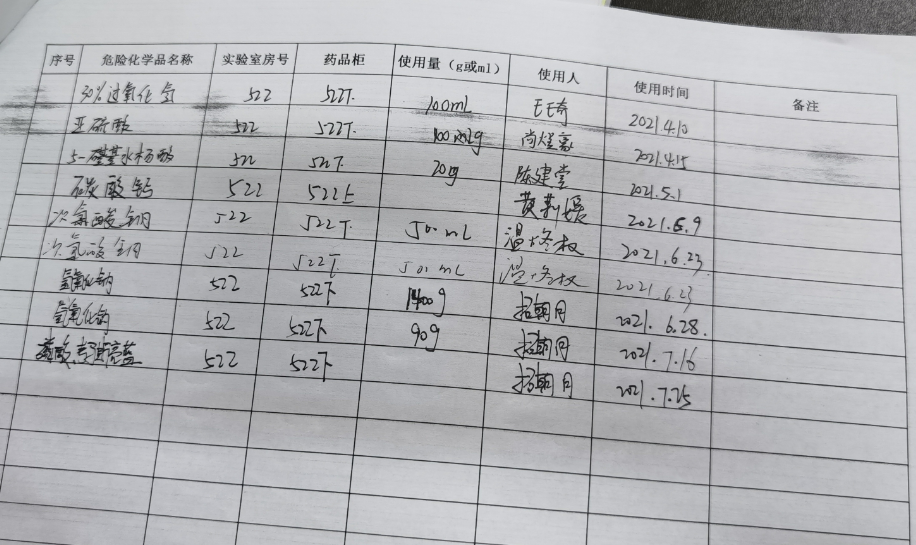 序号 危险化学品名称 实验室房号 药品柜 使用量（g或ml） 使用人 使用时间 备注
30%过氧化氢 522 522下 100mL 王奇 2021.4.10
亚硫酸 522 522下 100 g 尚煜豪 2021.4.15
5-磺基水杨酸 522 522下 20g 陈建堂 2021.5.1
碳酸钙 522 522上 黄 2021.6.9
次氯酸钠 522 522下 500mL 温 权 2021.6.23
次氯酸钠 522 522下 500mL 温 权 2021.6.23
氢氧化钠 522 522下 1400g 招朝月 2021.6.28.
氢氧化钠 522 522下 90g 招朝月 2021.7.16
522 522下 招朝月 2021.7.25